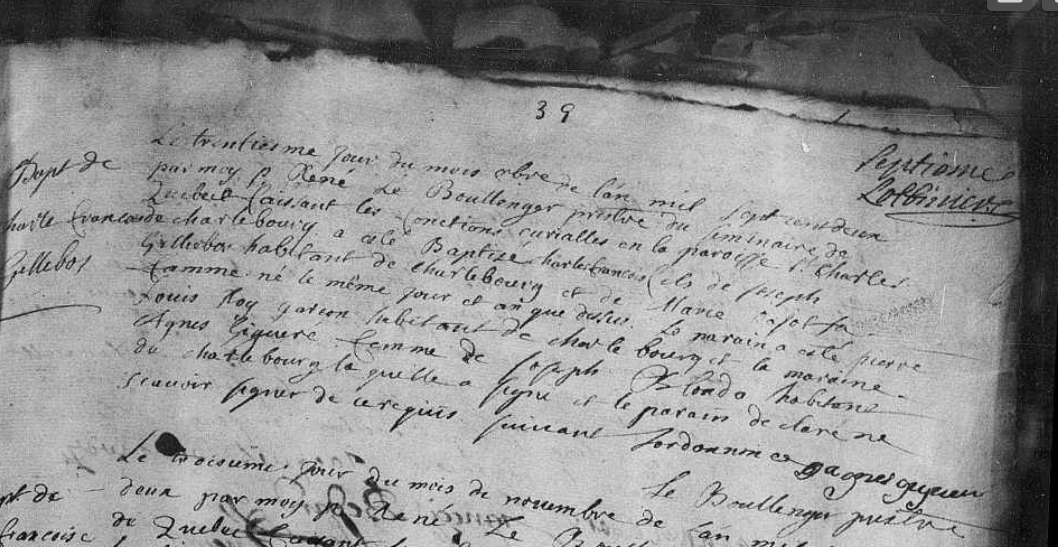 39
Septiesme
Lotbiniere
Le trentiesme jour du mois 8bre de l'an mil sept cent deux
Bapt de
par moy p René Le Boullenger prestre du seminaire de
Quebec faisant les fonctions curialles en la paroisse st Charles
charle francois
de charlebourg a esté Baptisé charles francois fils de joseph
Gillebos
Gillebos habitant de charlebourg et de Marie
famme né le même jour et an que dessus. Le parain a esté pierre
Louis Roy garcon habitant de charlebourg et la maraine
Agnes Giguere femme de joseph habitant
de charlebourg la quelle a signé et le parain declare ne
scavoir signer de ce requis suivant l'ordonnance
agnes
Le Boullenger prestre
Le troisieme jour du mois de novembre de l'an mil
pt de
deux par moy p René Le
francoise
de Quebec